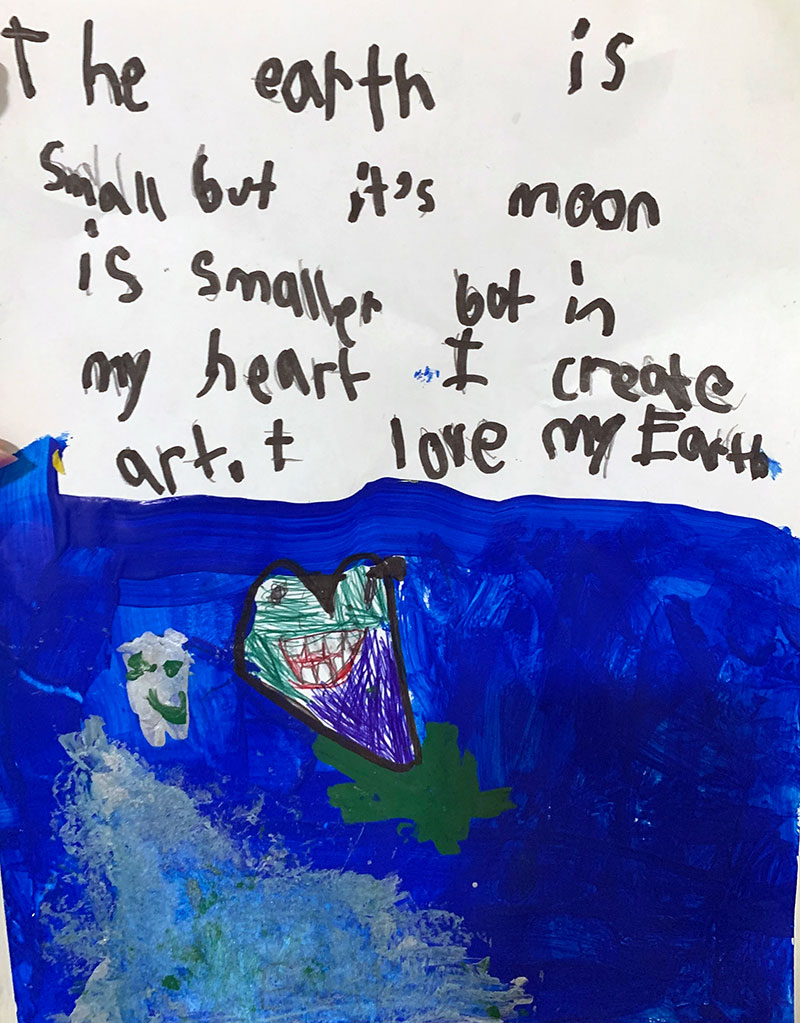 The earth is
small but it's moon
is smaller but in
my heart I create
art. I love my Earth